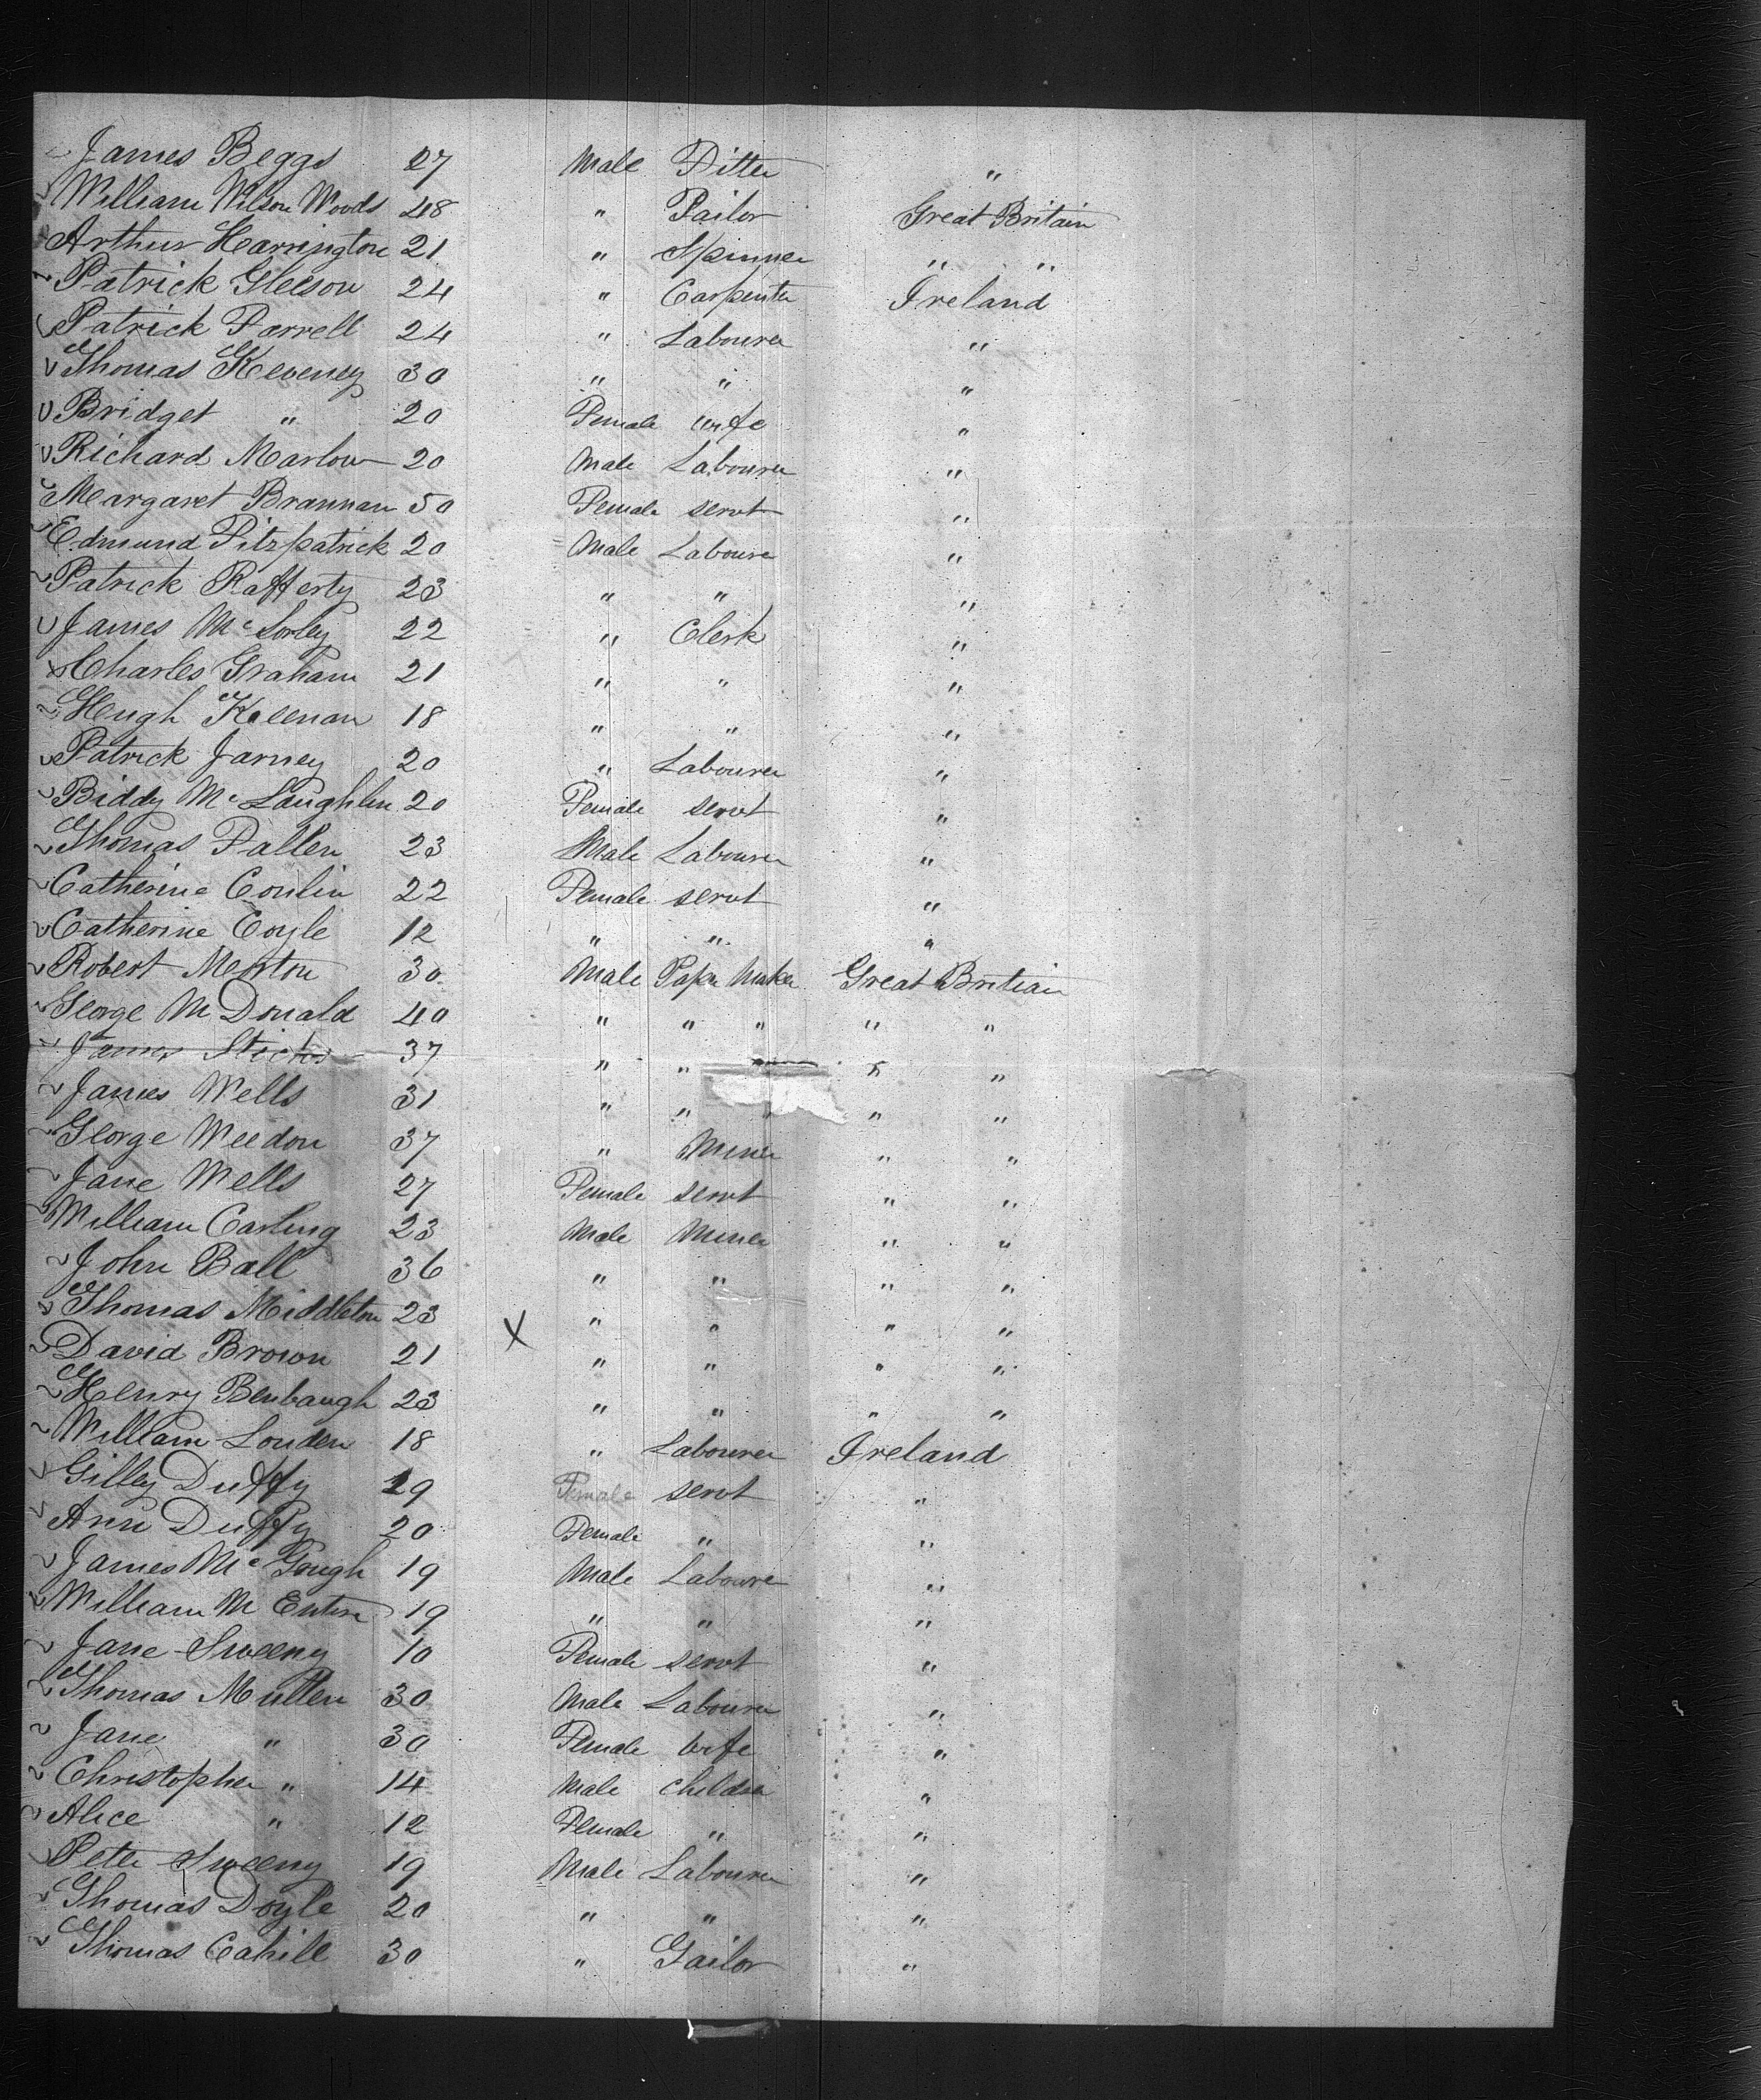 James Beggs 27 Male Fitter "
William Wilson Woods 48 " Tailor Great Britain
Arthur Harrington 21 " Spinner " "
Patrick Gleeson 24 " Carpenter Ireland
Patrick Farrell 24 " Labourer "
Thomas Keveney 30 " " "
Bridget " 20 Female wife "
Richard Marlow 20 Male Labourer "
Margaret Brannan 50 Female servt "
Edmund Fitzpatrick 20 Male Labourer "
Patrick Rafferty 23 " " "
James McSorley 22 " Clerk "
Charles Graham 21 " " "
Hugh Keenan 18 " " "
Patrick Jarney 20 " Labourer "
Biddy McLaughlin 20 Female servt "
Thomas Fallen 23 Male Labourer "
Catherine Conlin 22 Female servt "
Catherine Coyle 12 " " "
Robert Merton 30 Male Paper Maker Great Britian
George McDonald 40 " " " " "
James 37 " " " "
James Wells 31 " " " " "
George Weedon 37 " Miner " "
Jane Wells 27 Female servt " "
William Carling 23 Male Miner " "
John Ball 36 " " " "
Thomas Middleton 23 X " " " "
David Brown 21 " " " "
Henry Benbaugh 23 " " " "
William Louden 18 " Labourer Ireland
Gilley Duffy 19 Female servt "
Ann Duffy 20 Female " "
James McGough 19 Male Labourer "
William McEntire 19 " " "
Jane Sweeny 10 Female servt "
Thomas Mullen 30 Male Labourer "
Jane " 30 Female wife "
Christopher " 14 Male children "
Alice " 12 Female " "
Peter Sweeny 19 Male Labourer "
Thomas Doyle 20 " " "
Thomas Cahill 30 " Tailor "